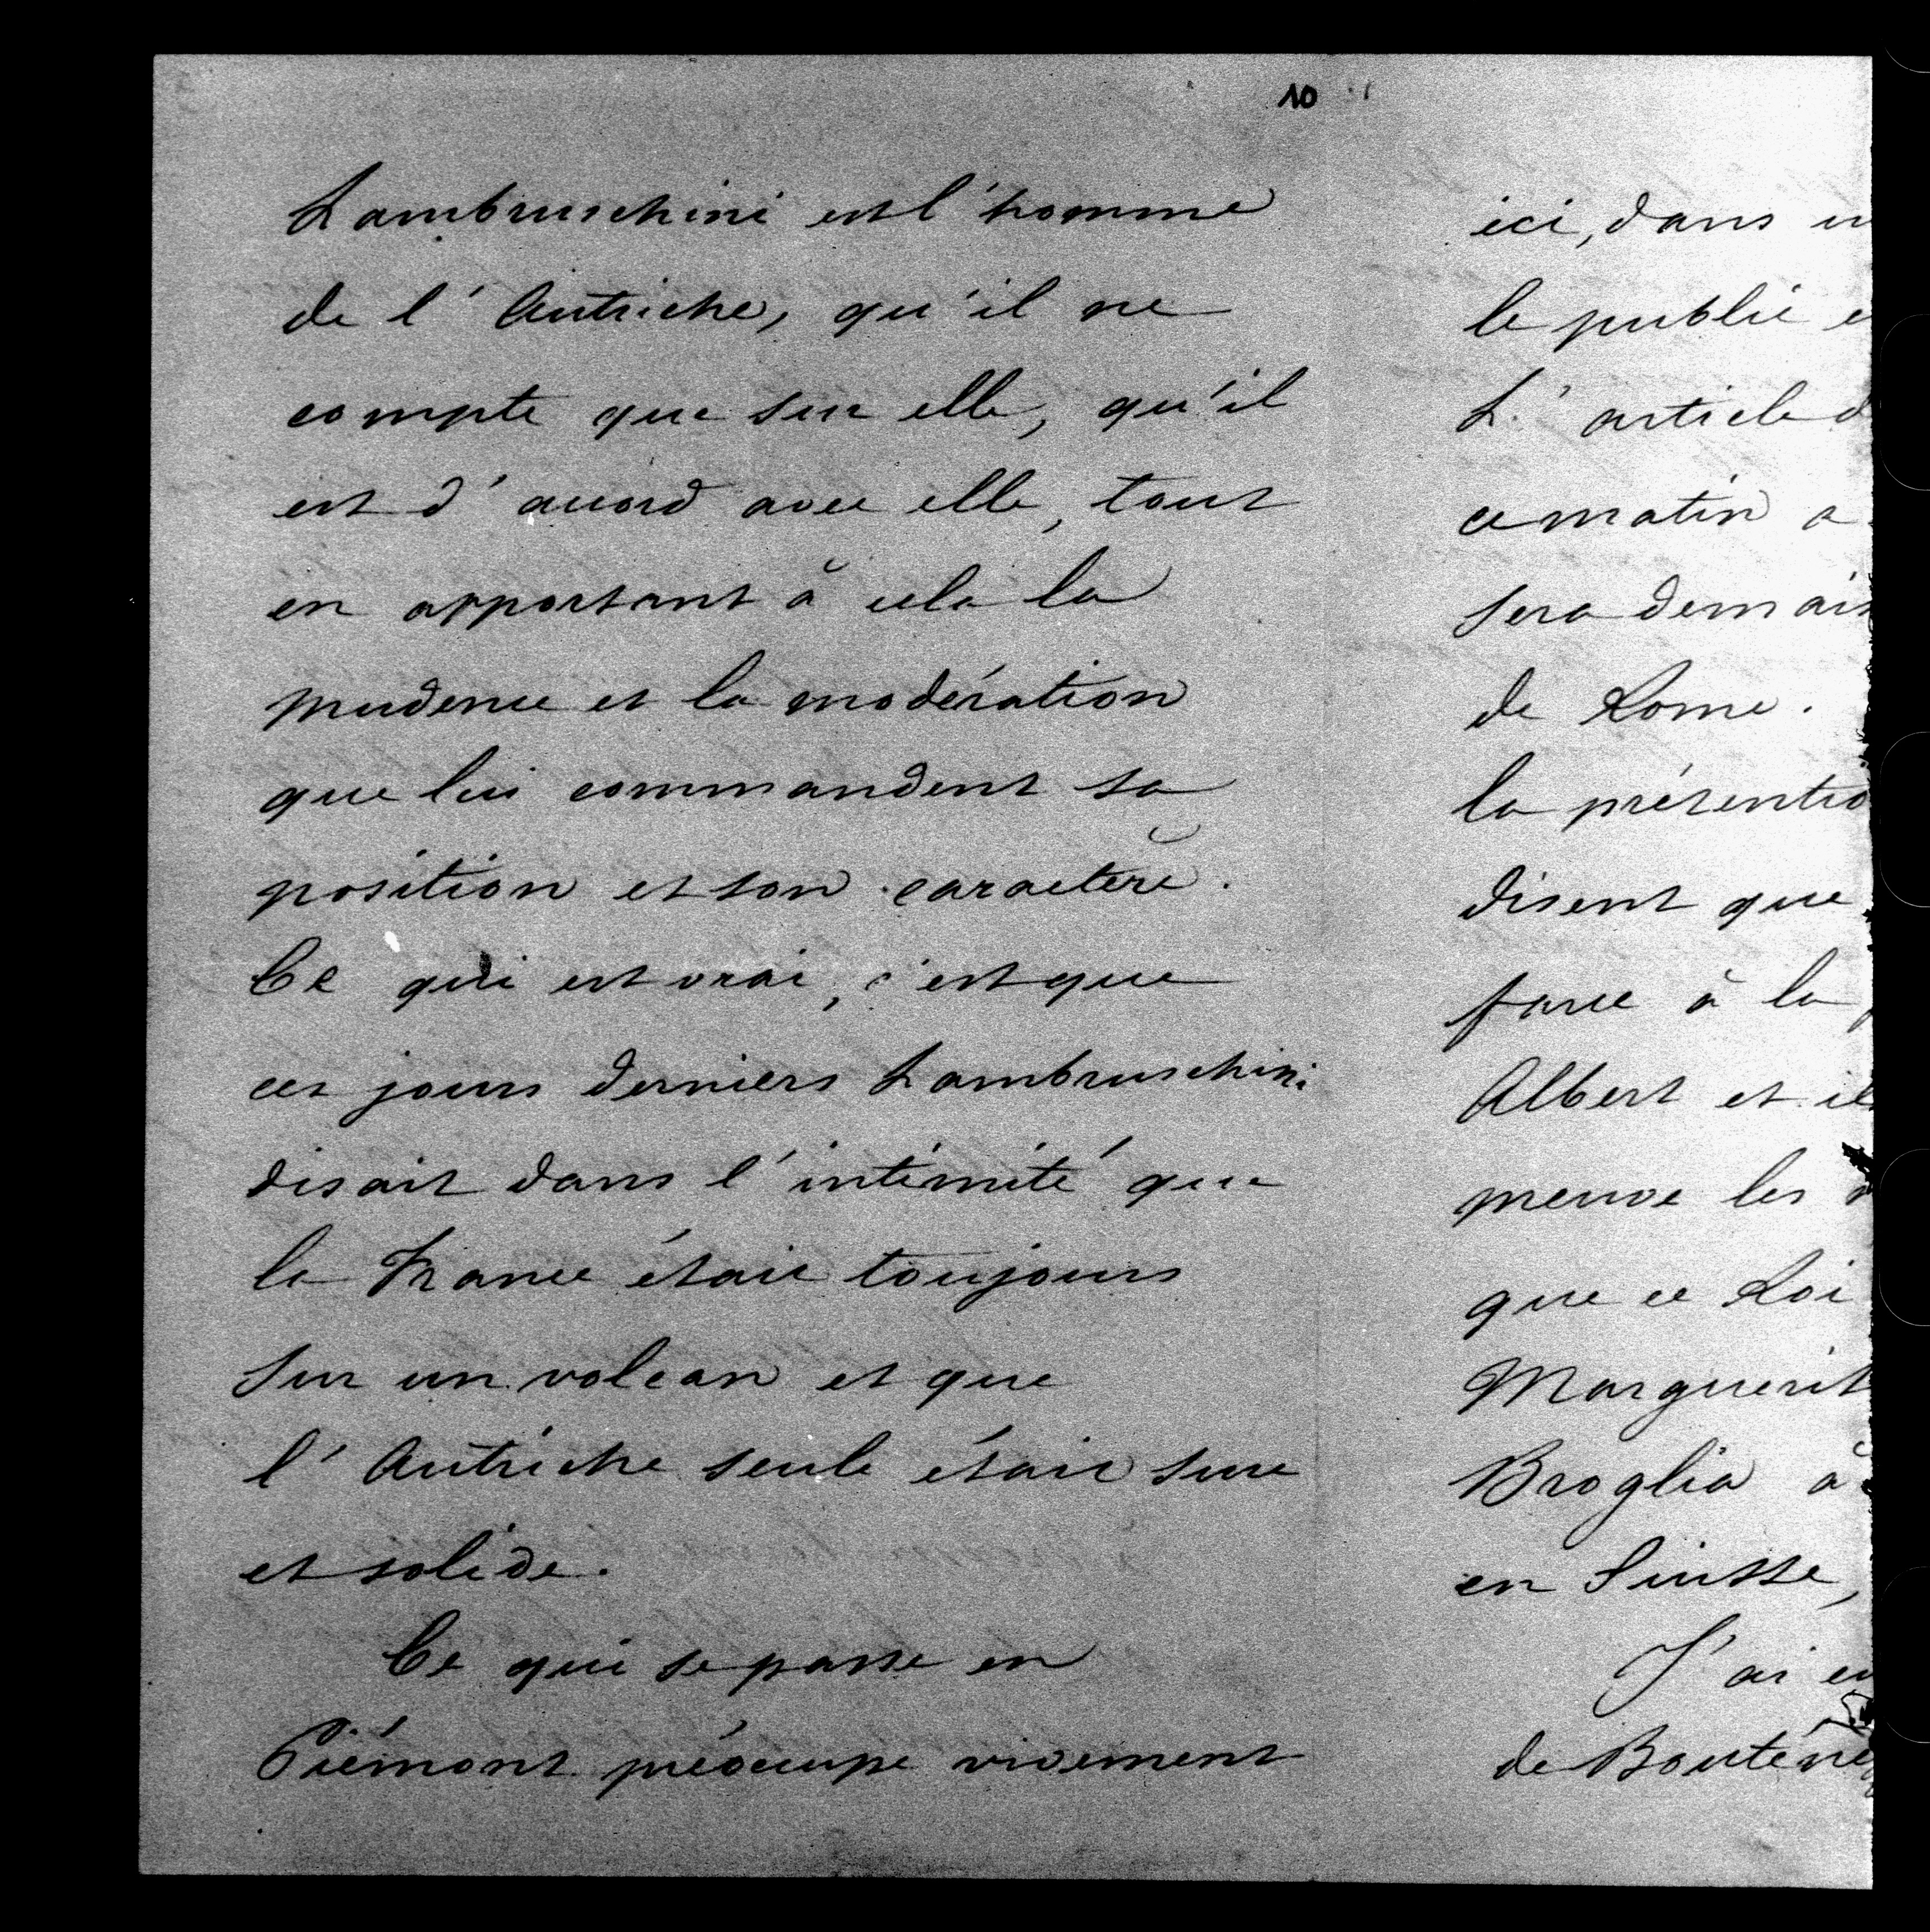 10
Lambruschini est l'homme
de l'Autriche, qu'il ne
compte que sur elle, qu'il
est d'accord avec elle, tout
en apportant à cela la
prudence et la modération
que lui commandent sa
position et son caractère.
Ce qui est vrai, c'est que
ces jours derniers Lambruschini
disait dans l'intimité que
la France était toujours
sur un volcan et que
l'Autriche seule était sure
et solide.
Ce qui se passe en
Piémont préoccupe vivement
ici, dans
le public
L'article
ce matin a
sera demain
de Rome.
la prétentio
disent que
farce à la
Albert et il
preuve les
que ce Roi
Marguerit
Broglia à
en Suisse,
J'ai eu
de Bouténe